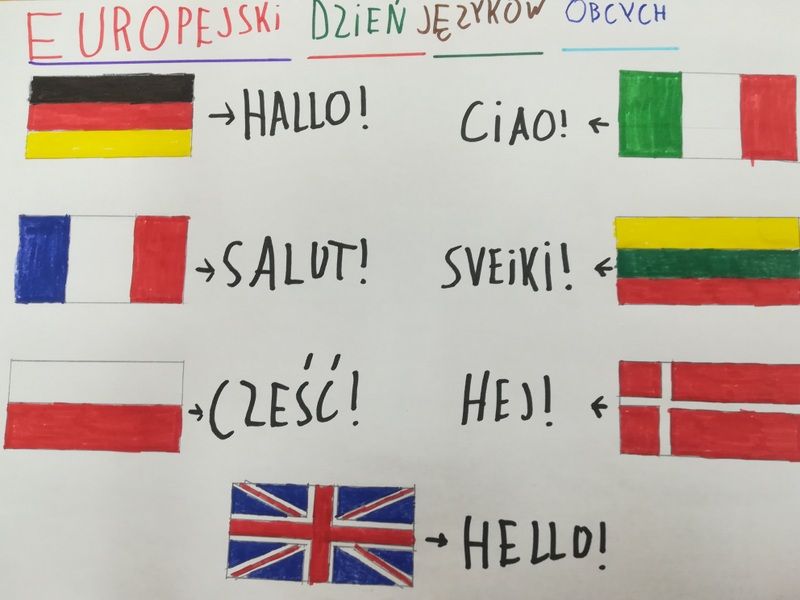 EUROPEJSKI DZIEŃ JĘZYKÓW OBCYCH
→ HALLO!
CIAO! ←
→ SALUT!
SVEIKI! ←
→ CZEŚĆ!
HEJ! ←
→ HELLO!